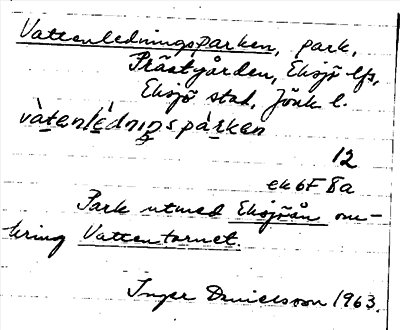 Vattenledningsparken, park,
Prästgården, Eksjö lfs,
Eksjö stad, Jönk l.
vàtenlédniŋspàrken
12
ek 6F 8a
Park utmed Eksjöån om-
kring Vattentornet.
Inger Danielsson 1963.